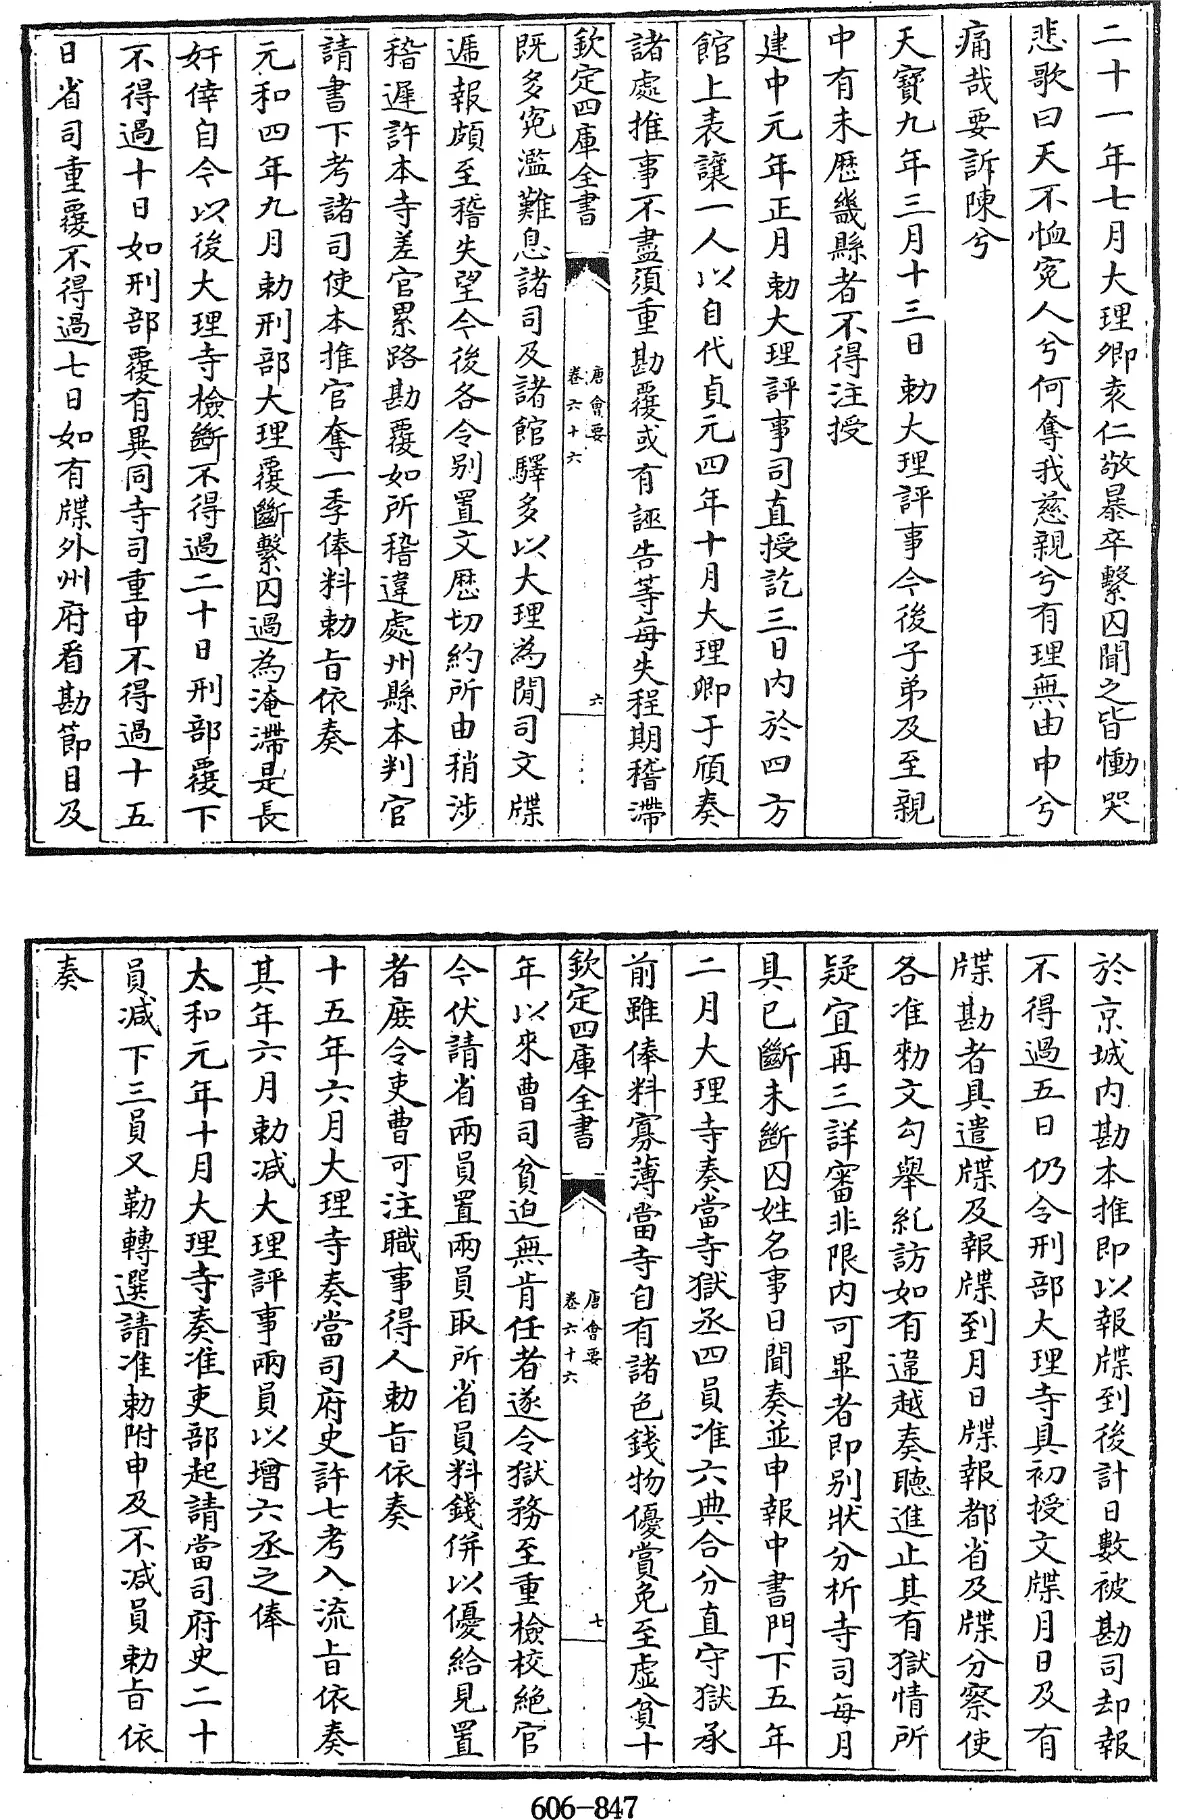 二十一年七月大理卿袁仁敬暴卒繫囚聞之皆慟哭
悲歌曰天不恤寃人兮何奪我慈親兮有理無由申兮
痛哉要訴陳兮
天寳九年三月十三日勅大理評事今後子弟及至親
中有未歴畿縣者不得注授
建中元年正月勅大理評事司直授訖三日内於四方
館上表讓一人以自代貞元四年十月大理卿于頎奏
諸處推事不盡須重勘覆或有誣告等每失程期稽滯
欽定四庫全書
唐會要
卷六十六
六
既多寃濫難息諸司及諸館驛多以大理為閒司文牒
逓報頗至稽失望令後各令别置文歴切約所由稍涉
稽遲許本寺差官累路勘覆如所稽違處州縣本判官
請書下考諸司使本推官奪一季俸料勅旨依奏
元和四年九月勅刑部大理覆斷繫囚過為淹滯是長
奸倖自今以後大理寺檢斷不得過二十日刑部覆下
不得過十日如刑部覆有異同寺司重申不得過十五
日省司重覆不得過七日如有牒外州府看勘節目及
於京城内勘本推即以報牒到後計日數被勘司却報
不得過五日仍令刑部大理寺具初授文牒月日及有
牒勘者具遣牒及報牒到月日牒報都省及牒分察使
各准勅文勾舉糺訪如有違越奏聽進止其有獄情所
疑宜再三詳審非限内可畢者即别狀分析寺司每月
具已斷未斷囚姓名事日聞奏並申報中書門下五年
二月大理寺奏當寺獄丞四員准六典合分直守獄承
前雖俸料寡薄當寺自有諸色錢物優賞免至虚貧十
欽定四庫全書
唐會要
卷六十六
七
年以來曹司貧迫無肯任者遂令獄務至重檢校絶官
今伏請省兩員置兩員取所省員料錢併以優給見置
者庶令吏曹可注職事得人勅旨依奏
十五年六月大理寺奏當司府史許七考入流旨依奏
其年六月勅减大理評事兩員以增六丞之俸
太和元年十月大理寺奏准吏部起請當司府史二十
員减下三員又勒轉選請准勅附申及不减員勅旨依
奏
606-847